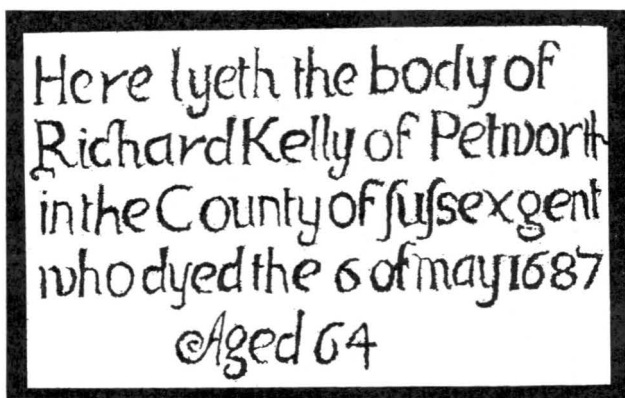 Here lyeth the body of
Richard Kelly of Petworth
in the County of ſuſsex gent
who dyed the 6 of may 1687
Aged 64